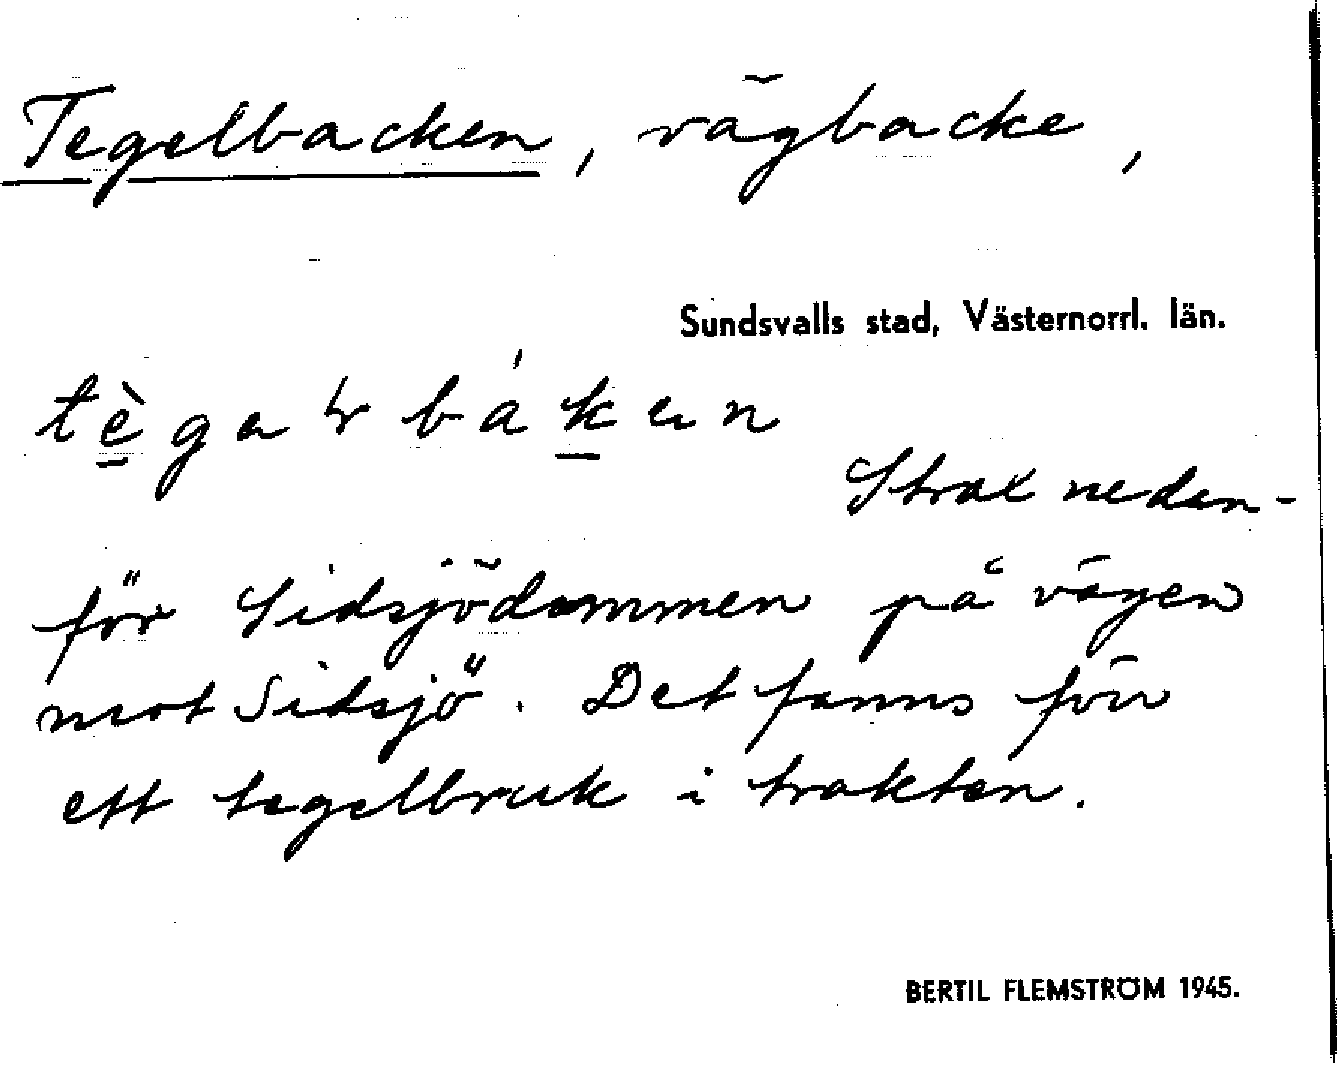 Tegelbacken, vägbacke,
Sundsvalls stad, Västernorrl. län.
Strax neden-
för Sidsjödammen på vägen
mot Sidsjö. Det fanns förr
ett tegelbruk i trakten.
BERTIL FLEMSTRÖM 1945.